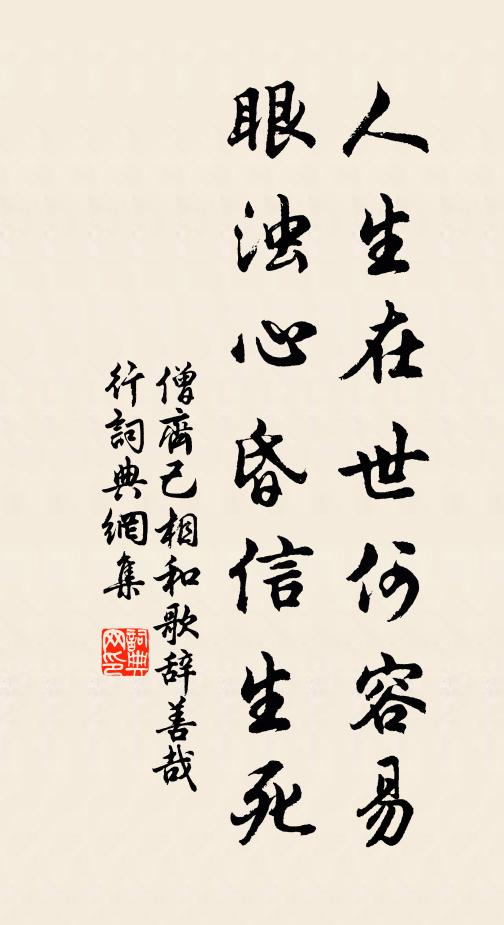 人生在世何容易
眼浊心昏信生死
僧齊己相和歌辞善哉
行詞典網集
詞典
网印